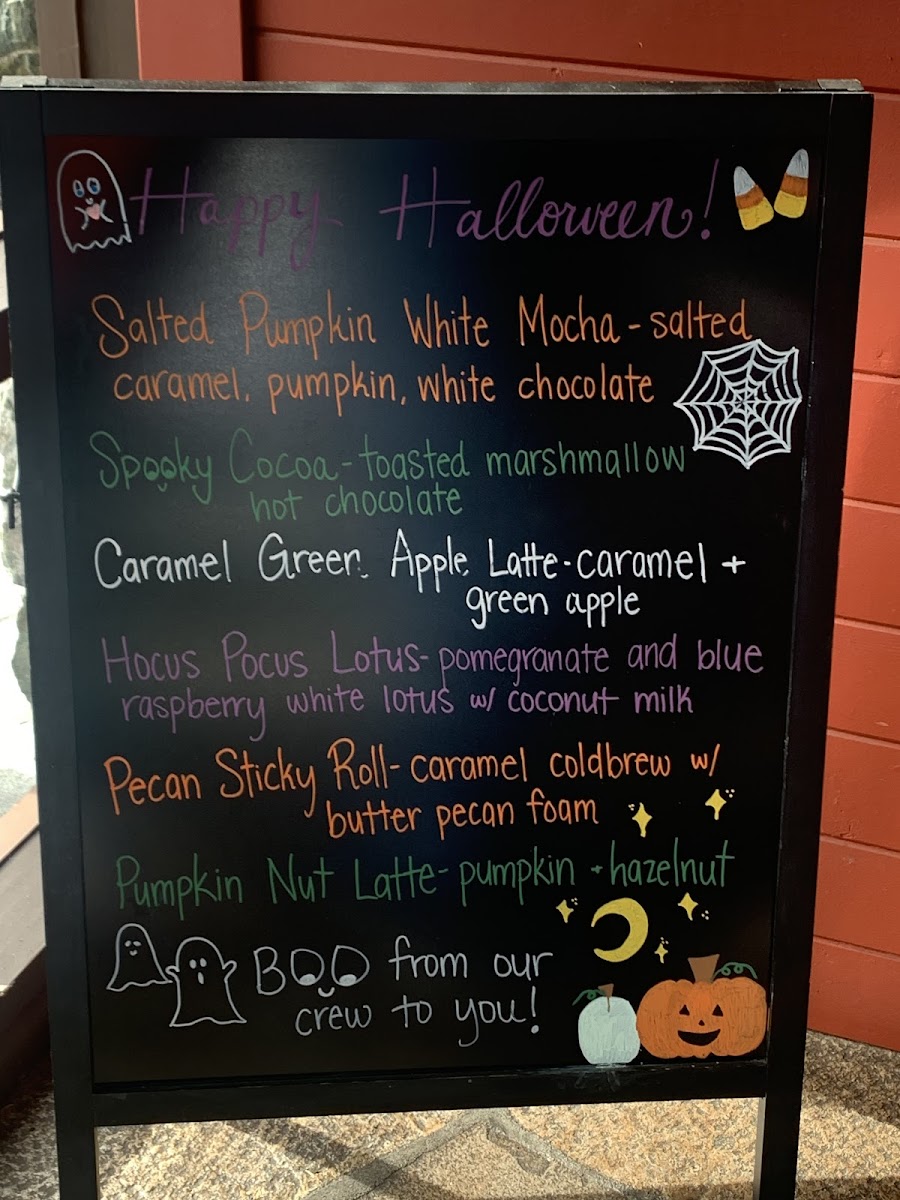 Happy Halloween!
Salted Pumpkin White Mocha - salted
caramel, pumpkin, white chocolate
Spooky Cocoa - toasted marshmallow
hot chocolate
Caramel Green Apple Latte - caramel +
green apple
Hocus Pocus Lotus - pomegranate and blue
raspberry white lotus w/ coconut milk
Pecan Sticky Roll - caramel coldbrew w/
butter pecan foam
Pumpkin Nut Latte - pumpkin + hazelnut
BOO from our
crew to you!